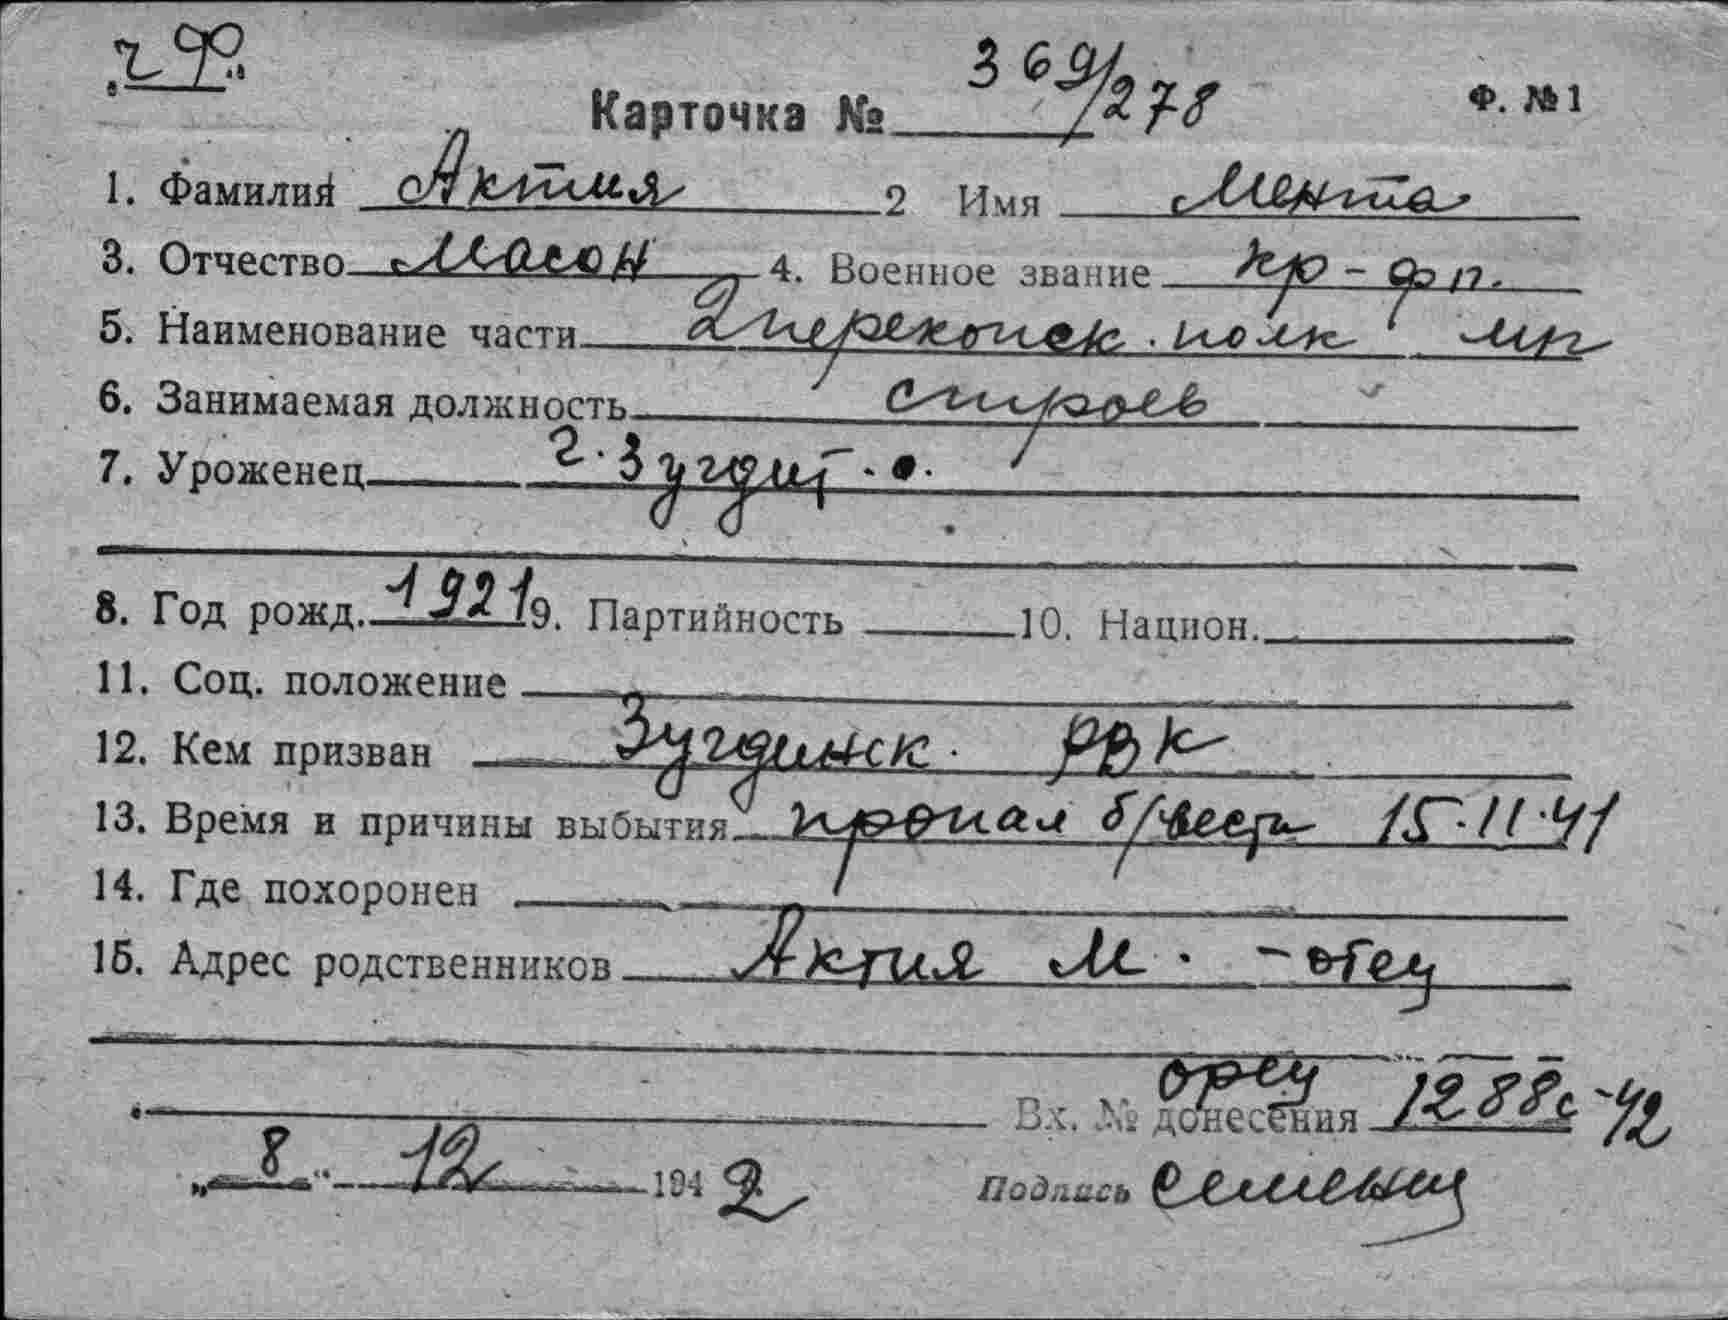 ч ф.
Карточка № 369/278 Ф. №1
1. Фамилия Актия 2 Имя Мента
3. Отчество Масон 4. Военное звание кр-фл.
5. Наименование части 2 перекопск. полк мп
6. Занимаемая должность строев
7. Уроженец г. Зугдит. о.
8. Год рожд. 1921 9. Партийность 10. Национ.
11. Соц. положение
12. Кем призван Зугдинск. РВК
13. Время и причины выбытия пропал б/вести 15.11.41
14. Где похоронен
15. Адрес родственников Актия М. - отец
Вх. № донесения 1288с-42
„8" 12 1942 Подпись